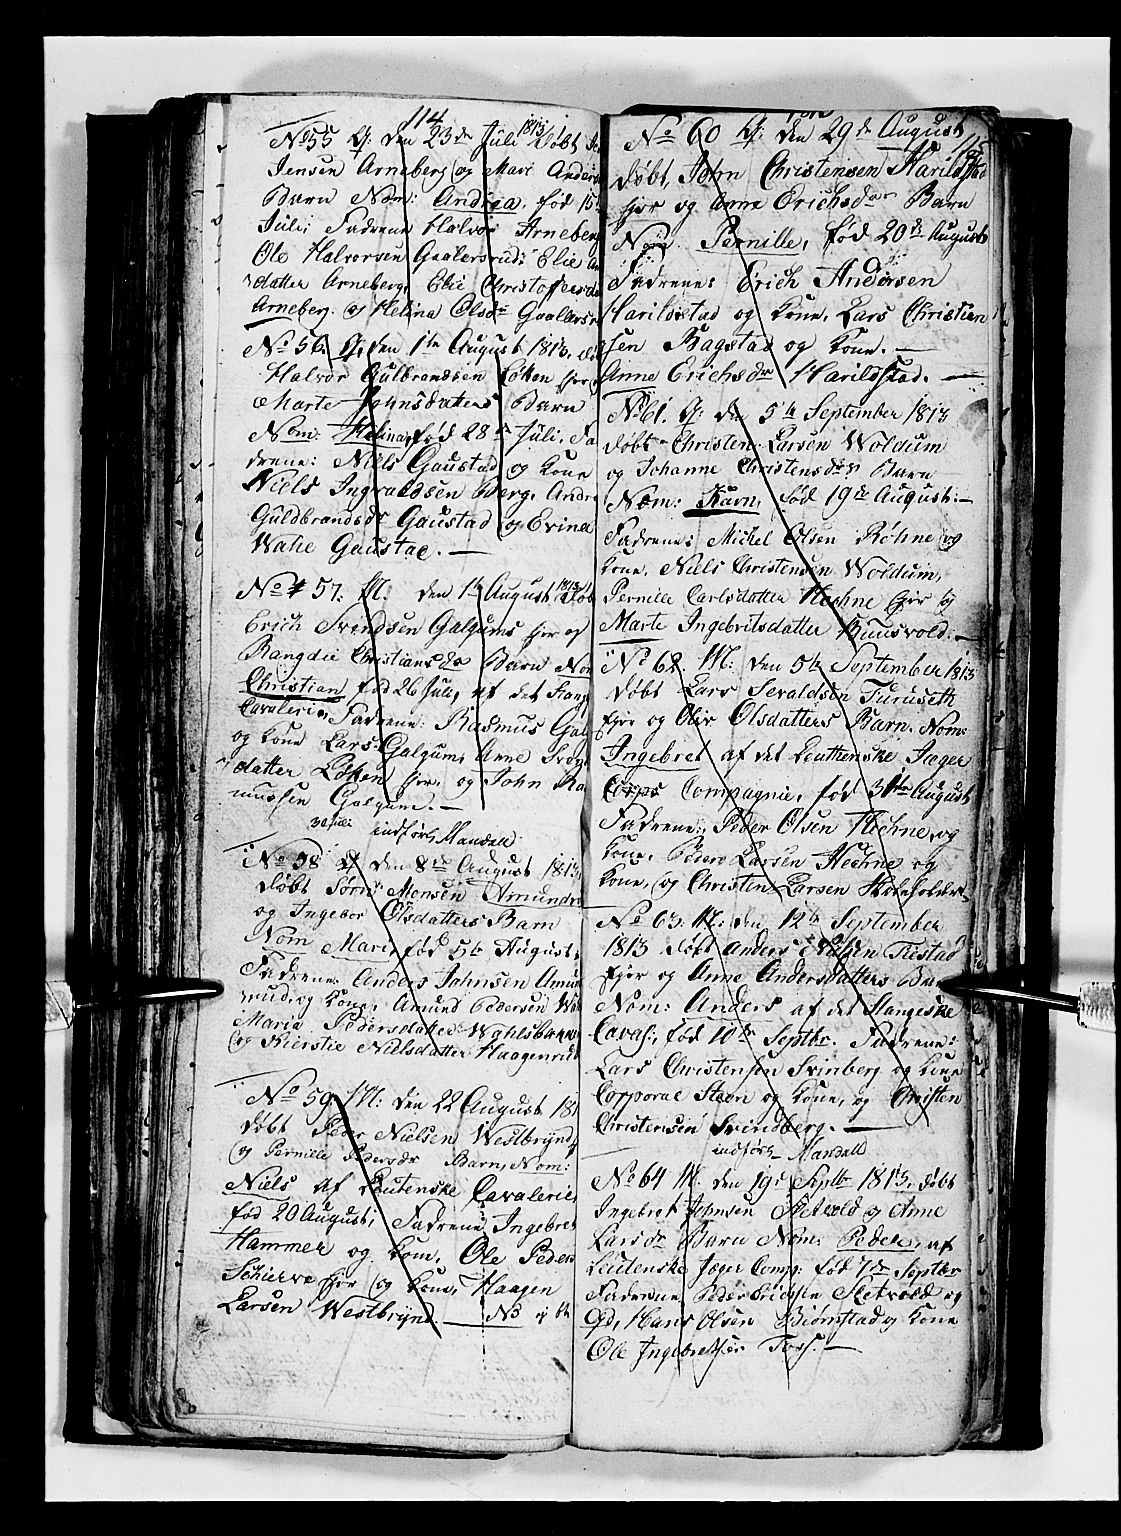 114
No 55 Q: den 23de Juli 1813 Døbt
Jensen Arneberg og Mari Anders
Barn Nom: Andrea, fød 15
Juli; Fadrene Halvor Arneberg
Ole Halvorsen Gaalersrud; Elie
datter Arneberg, Elie Christoffersda
Arneberg. og Helina Olsdr Gaalersr
No 56. Q. den 1te August 1813,
Halvor Gulbrandsen Løken
Marte Johnsdatters Barn
Nom: Helina, fød 28de Juli. Fa
drene: Niels Gaustad og Kone
Niels Ingvaldsen Berg, Andr
Guldbrandsdr Gaustad og Evina
Gaustad. —
No 57. M. den 1te August 1813 Døb
Erich Svendsen Galgums og
Rangdie Christiansdr Barn Nom
Christian, fød 26 Juli, af det Stang
Cavalerie, Fadrene: Rasmus Gal
og Kone Lars Galgum, Anne
datter Løken og John Ra
mussen Galgum. —
30 Juli indført Mandall
No 58 Q den 8de August 1813
døbt Sørn Monsen Amundr
og Ingebor Olsdatters Barn
Nom Mari, fød 5te August.
Fadrene Anders Johnsen Amu
rud, og Kone, Amund Pedersen
Maria Pedersdatter
og Kierstie Nielsdatter Haagenrud
No 59 M: den 22 August 181
døbt Peder Nielsen Westbrynd
og Pernille Pedersdr Barn, Nom:
Niels af Leutenske Cavalerie,
fød 20 August; Fadrene Ingebret
Hammer og Kone, Ole Peders
og Kone, Haagen
Larsen Westbrynd. —
No 60 Q: den 29de August
115
døbt, John Christensen Harildstad
og Anne Erichsdrs Barn
Nom. Pernille, fød 20de August
Fadrene: Erich Andersen
Harildstad og Kone, Lars Christian
sen Bagstad og Kone. —
Anne Erichsdr Harildstad. —
No 61. Q: den 5te September 1813
døbt Christen Larsen Woldum
og Johanne Christensdrs Barn
Nom: Karn, fød 19de August. —
Fadrene: Michel Olsen Røhne og
Kone, Niels Christensen Woldum,
Pernille Carlsdatter Hechne og
Marte Ingebritsdatter Buusvold. —
No 62. M: den 5te September 1813
døbt Lars Sevaldsen Furuseth
og Oliv Olsdatters Barn. Nom:
Ingebret af det Leuthenske Jæger
Corps Compagnie, fød 31te August
Fadrene: Peder Olsen Hechne, og
Kone, Peder Larsen Hechne og
Kone, og Christen Larsen
No 63. M: den 12te September
1813 døbt Anders Nilsen Tristad
og Anne Andersdatters Barn
Nom: Anders af det Stangeske
Caval:, fød 10de Septbr. Fadrene:
Lars Christensen Svinberg og Kone
Corporal Steen og Kone, og Christen
Christensen Svindberg. —
indført Mandall
No 64 M. den 19de Septb 1813, døbt
Ingebret Johnsen Hetvold og Anne
Larsdr Barn Nom: Peder, af
Leutenske Jæger Comp: fød 7de Septbr
Fadrene Peder Erichsen Hetvold og
Hans Olsen Biørnstad og Kone
Ole Ingebretsen Torp. —